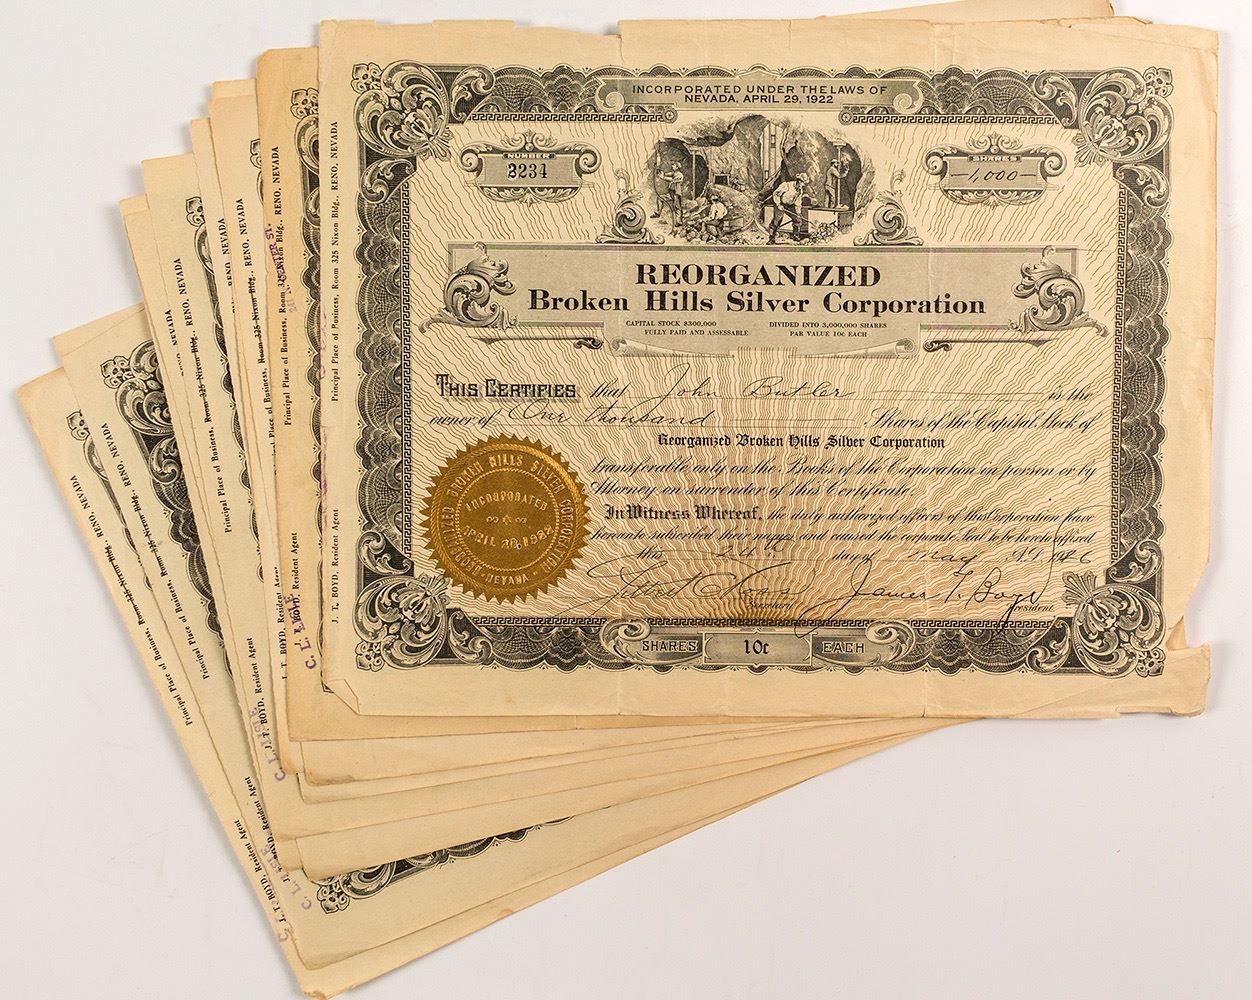 INCORPORATED UNDER THE LAWS OF
NEVADA, APRIL 29, 1922
NUMBER
2234
SHARES
—1,000—
REORGANIZED
Broken Hills Silver Corporation
CAPITAL STOCK $300,000
FULLY PAID AND ASSESSABLE
DIVIDED INTO 3,000,000 SHARES
PAR VALUE 10c EACH
THIS CERTIFIES that John Butler is the
owner of One thousand Shares of the Capital Stock of
Reorganized Broken Hills Silver Corporation
transferable only on the Books of the Corporation in person or by
Attorney on surrender of this Certificate.
In Witness Whereof, the duly authorized officers of this Corporation have
hereunto subscribed their names and caused the corporate Seal to be hereto affixed
this 24th day of May A.D. 1926
Secretary
James F. President
SHARES 10c EACH
REORGANIZED BROKEN HILLS SILVER CORPORATION
INCORPORATED
APRIL 29, 1922
NEVADA
J. T. BOYD, Resident Agent
Principal Place of Business, Room 325 Nixon Bldg., RENO, NEVADA
C. L. LISLE
J. T. BOYD, Resident Agent
Principal Place of Business, Room 325 Nixon Bldg., RENO, NEVADA
CENTER ST.
J. T. BOYD, Resident Agent
Place of Business, Room 325 Nixon Bldg., RENO, NEVADA
RENO, NEVADA
C. L. LISLE
J. T. BOYD, Resident Agent
Principal Place of Business, Room 325 Nixon Bldg., RENO, NEVADA
NEVADA
BOYD, Resident Agent
Principal Place of Business, Room 325 Nixon Bldg., RENO, NEVADA
C. L. LISLE
J. T. BOYD, Resident Agent
Principal Place of Business, Room 325 Nixon Bldg., RENO, NEVADA